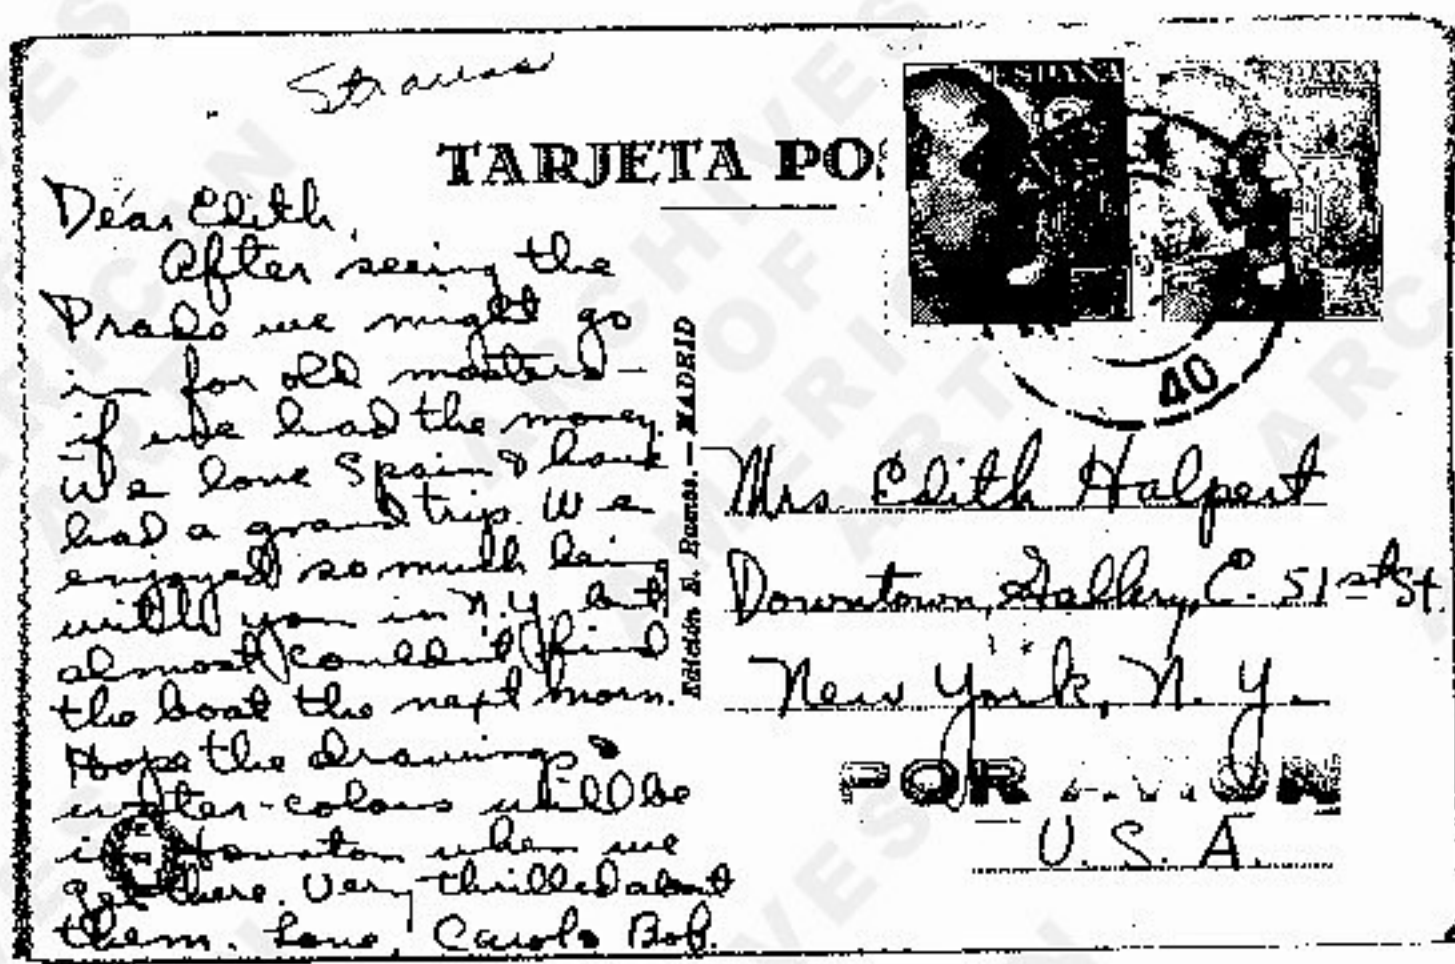 Strauss
TARJETA POS
ESPAÑA
40
Dear Edith,
After seeing the
Prado we might go
in for old masters –
if we had the money.
We love Spain & have
had a grand trip. We
enjoyed so much being
with you in N.Y. but
almost couldn't find
the boat the next morn.
Hope the drawings &
water-colors will be
in Houston when we
get there. Very thrilled about
them. Love, Carol & Bob.
Edición E. – MADRID
Mrs. Edith Halpert
Downtown Gallery, E. 51st St.
New York, N.Y.
POR AVION
U.S.A.
ARCHIVES OF AMERICAN ART